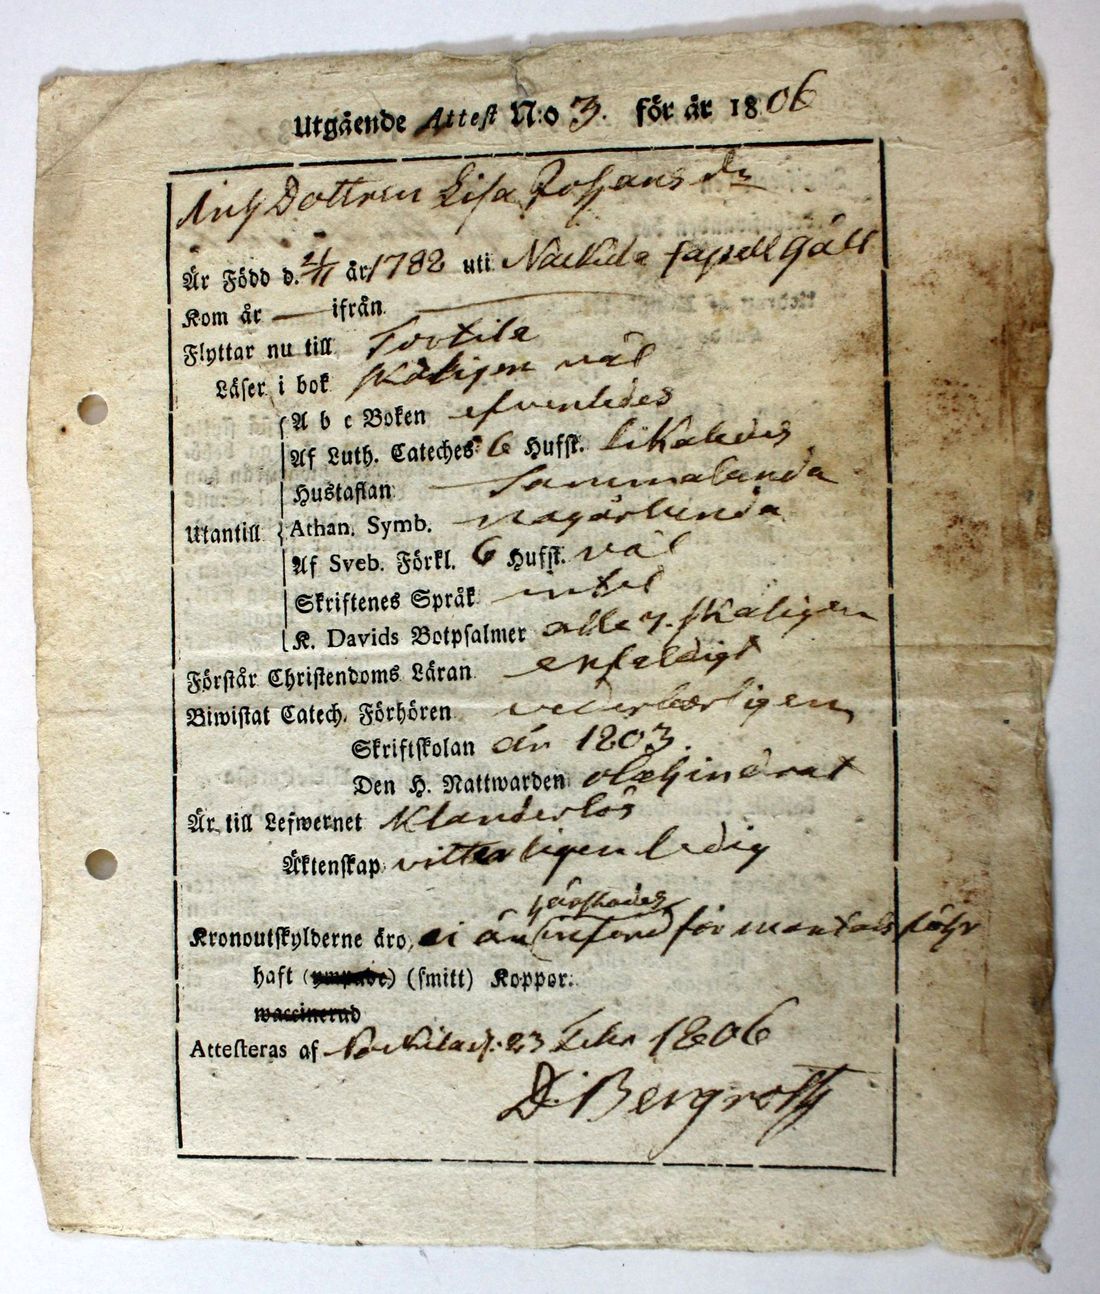 Utgående Attest N:o 3. för år 1806
Dottren Lisa Johans dr
Är Född d. 21/11 år 1782 uti Nackila Capell Gäll
Kom år — ifrån —
Flyttar nu till Tortila
Läser i bok skäligen väl
A b c Boken efvenledes
Af Luth. Cateches: 6 Hufst. likaledes
Hustaflan Sammalunda
Utantill Athan. Symb. någorlunda
Af Sveb. Förkl. 6 Hufst. väl
Skriftenes Språk intet
K. Davids Botpsalmer alle 7. skäligen
Förstår Christendoms Läran enfaldigt
Biwistat Catech. Förhören vederbörligen
Skriftskolan år 1803.
Den H. Nattwarden obehindrat
Är till Lefwernet Klanderlös
Äktenskap vitterligen ledig
härstädes
Kronoutskylderne äro, ei än införd för mantals
haft (ympade) (smitt) Koppor.
waccinerad
Attesteras af Nackila d. 23 Febr 1806
D. Bergroth